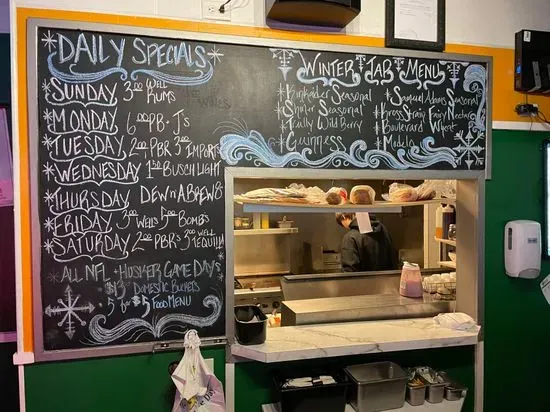 DAILY SPECIALS
SUNDAY 3.00 WELL RUMS
MONDAY 6.00 PB-J's
TUESDAY 2.00 PBR 3.00 IMPORTS
WEDNESDAY 1.50 BUSCH LIGHT
THURSDAY DEW n A BREW 8
FRIDAY 3.00 WELLS 5.00 BOMBS
SATURDAY 2.00 PBR's 3.00 WELL TEQUILA
ALL NFL + HUSKER GAME DAYS
$13.00 DOMESTIC BUCKETS
5 for $5 FOOD MENU
WINTER TAP MENU
Seasonal
Shiner Seasonal
Scully Wild Berry
Guinness
Samuel Adams Seasonal
Kross Strain Fairy Nectar
Boulevard Wheat
Modelo